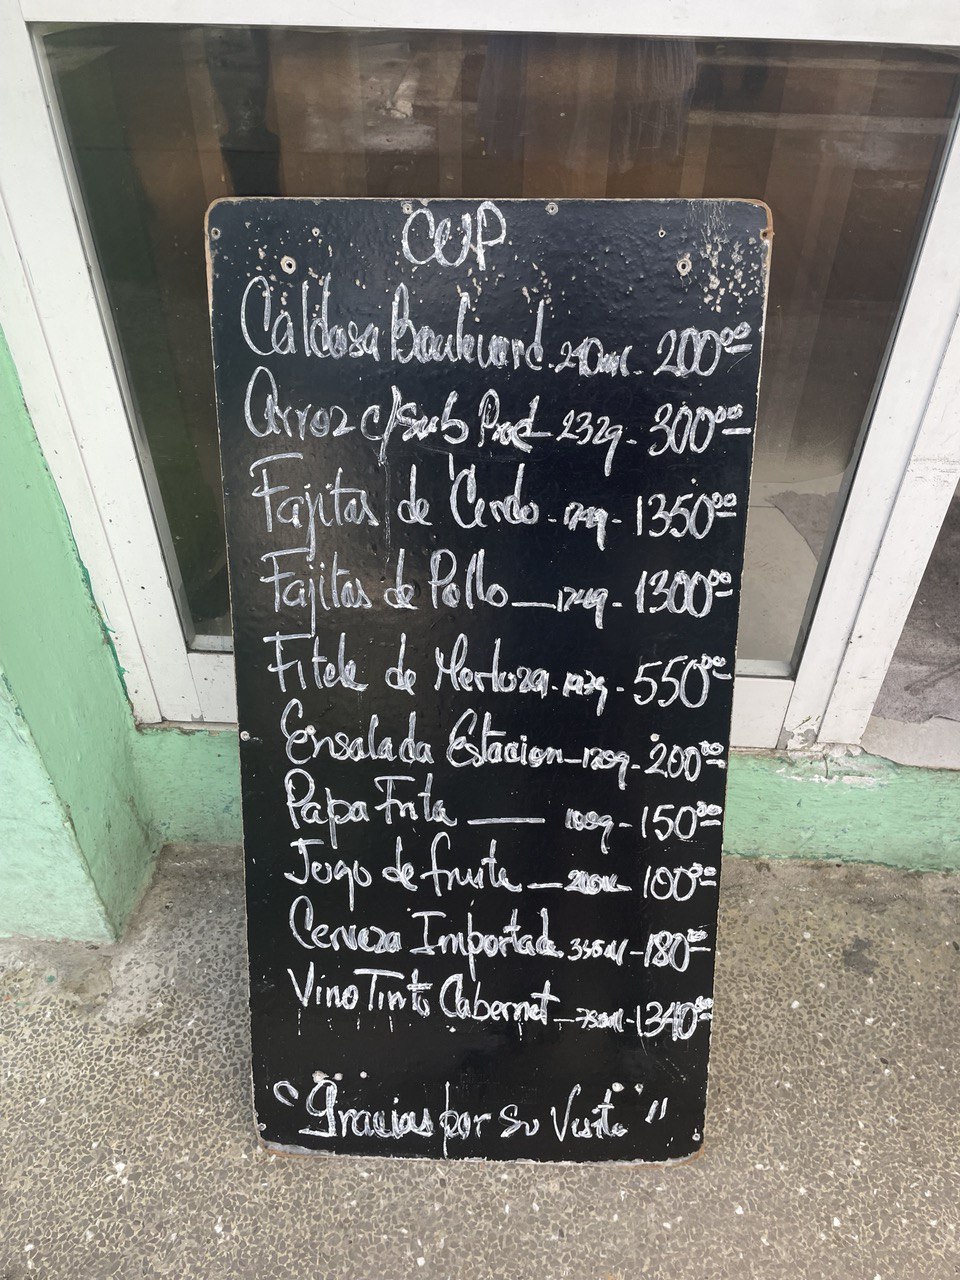 CUP
Caldosa Boulevard. 240ml - 200.00
Arroz c/Sub Prod - 232g - 300.00
Fajitas de Cerdo - 174g - 1350.00
Fajitas de Pollo - 174g - 1300.00
de Merluza - - 550.00
Ensalada Estacion - 120g - 200.00
Papa Frita - 100g - 150.00
Jugo de fruta - 240ml 100.00
Cerveza Importada 355ml - 180.00
Vino Tinto Cabernet - 750ml - 1340.00
"Gracias por Su Visita"